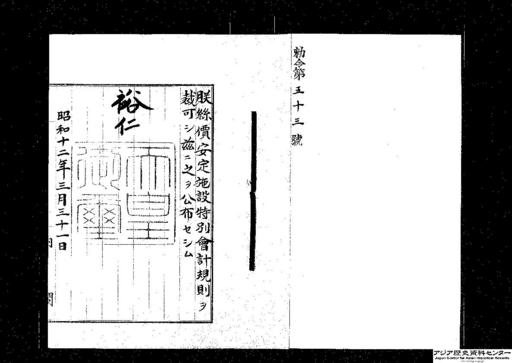 勅令第五十三號
朕絲價安定施設特別會計規則ヲ
裁可シ茲ニ之ヲ公布セシム
裕仁
天皇御璽
昭和十二年三月三十一日
アジア歴史資料センター
Japan Center for Asian Historical Records